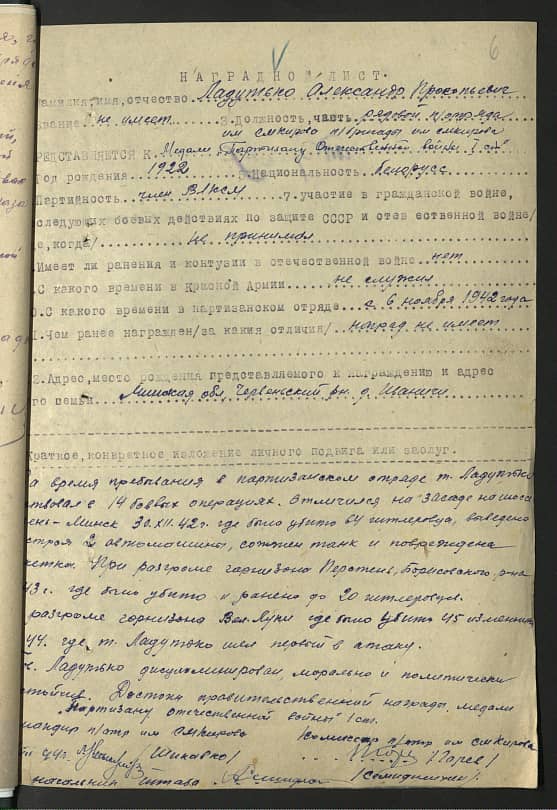 6
НАГРАДНОЙ ЛИСТ.
Фамилия, имя, отчество Ладутько Александр Прокопьевич
Звание не имеет 3. Должность, часть рядовой п/отряда
им смкирова п/бригады им смкирова
ПРЕДСТАВЛЯЕТСЯ К Медали "Партизану Отечественной войны" I ст"
Год рождения 1922 Национальность белорусс
Партийность член ВЛКСМ 7. участие в гражданской войне,
следующих боевых действиях по защите СССР и отечественной войне/
е, когда/ не принимал
Имеет ли ранения и контузии в отечественной войне нет
С какого времени в Красной Армии не служил
0. С какого времени в партизанском отряде с 6 ноября 1942 года
1. Чем ранее награжден/за какия отличия/ наград не имеет
2. Адрес, место рождения представляемого к награждению и адрес
го семьи Минская обл, Червеньский р-н. д.
Краткое, конкретное изложение личного подвига или заслуг.
За время пребывания в партизанском отряде т. Ладутько
ствовал в 14 боевых операциях. Отличился на засаде на шоссе
ень - Минск 30.XII.42 г. где было убито 64 гитлеровца, выведено
строя 2 автомашины, сожжен танк и повреждена
етка. При разгроме гарнизона Борисовского р-на
43 г. где было убито и ранено до 20 гитлеровцев.
разгроме гарнизона где было убито 45 изменник
44 г. где т. Ладутько шел первый в атаку.
т. Ладутько дисциплинирован, морально и политически
стойчив. Достоин правительственной награды, медали
"Партизану отечественной войны" I ст.
мандир п/отр им смкирова /комиссар п/отр им смкирова
44 г. /Шикавко/
начальник штаба